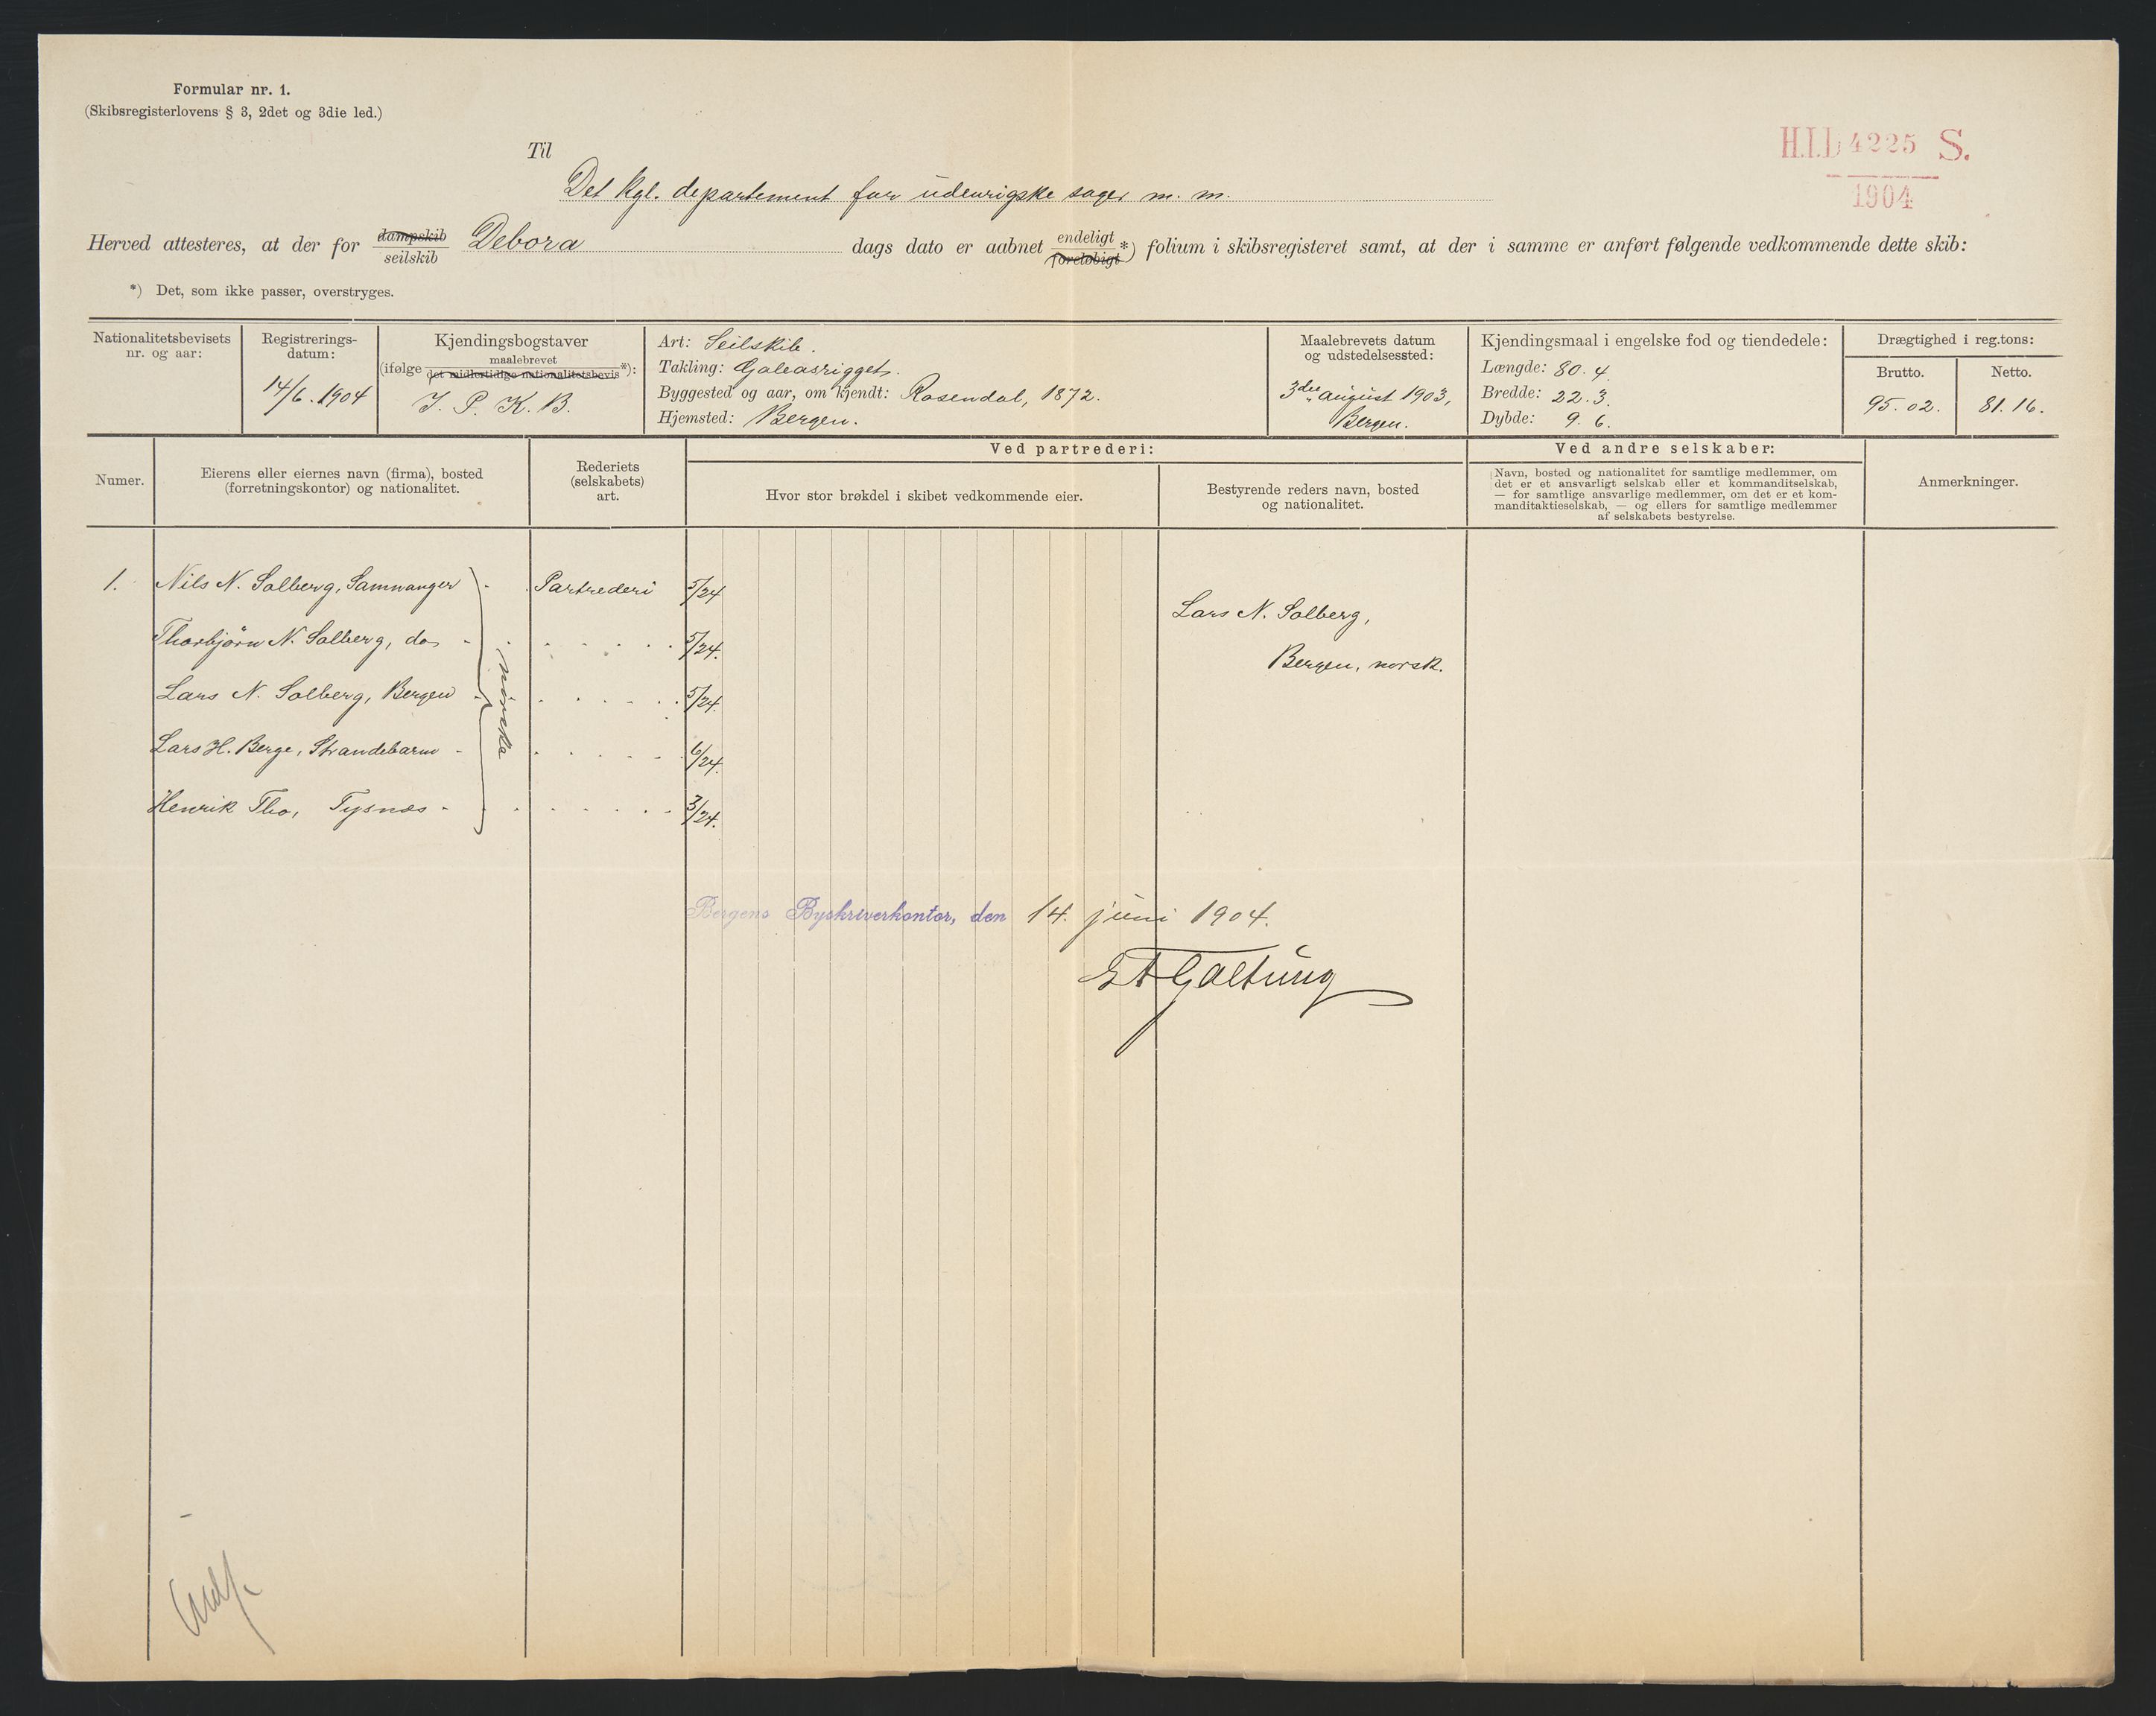 Formular nr. 1.
(Skibsregisterlovens § 3, 2det og 3die led.)
H.I.D 4225 S.
1904
Til
Det kgl. departement for udenrigske sager m. m.
Herved attesteres, at der for dampskib seilskib Debora dags dato er aabnet endeligt foreløbigt *) folium i skibsregisteret samt, at der i samme er anført følgende vedkommende dette skib:
*) Det, som ikke passer, overstryges.
Nationalitetsbevisets nr. og aar:
Registrerings-
datum:
14/6. 1904
Kjendingsbogstaver
(ifølge maalebrevet det midlertidige nationalitetsbevis *):
J. P. K. B.
Art: Seilskib.
Takling: Galeasrigget.
Byggested og aar, om kjendt: Rosendal, 1872.
Hjemsted: Bergen.
Maalebrevets datum
og udstedelsessted:
3die august 1903,
Bergen.
Kjendingsmaal i engelske fod og tiendedele:
Længde: 80. 4.
Bredde: 22. 3.
Dybde: 9. 6.
Drægtighed i reg.tons:
Brutto. Netto.
95. 02. 81. 16.
Numer.
Eierens eller eiernes navn (firma), bosted
(forretningskontor) og nationalitet.
Rederiets
(selskabets)
art.
Ved partrederi:
Hvor stor brøkdel i skibet vedkommende eier.
Bestyrende reders navn, bosted
og nationalitet.
Ved andre selskaber:
(Navn, bosted og nationalitet for samtlige medlemmer, om
det er et ansvarligt selskab eller et kommanditselskab,
— for samtlige ansvarlige medlemmer, om det er et kom-
manditaktieselskab, — og ellers for samtlige medlemmer
af selskabets bestyrelse.
Anmerkninger.
1. Nils N. Solberg, Samnanger - Partrederi 5/24
Thorbjörn N. Solberg, do - 5/24.
Lars N. Solberg, Bergen - 5/24.
Lars H. Berge, Strandebarm - 6/24.
Henrik Tho, Tysnæs - 3/24.
norske
Lars N. Solberg,
Bergen, norsk.
Bergens Byskriverkontor, den 14. juni 1904.
Galtung